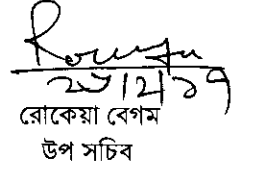 ২৮/২/১৭
রোকেয়া বেগম
উপ সচিব